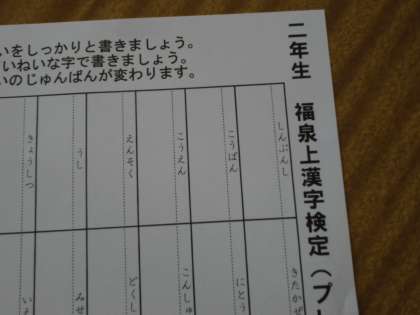 二年生 福泉上漢字検定(プ
いをしっかりと書きましょう。
いねいな字で書きましょう。
いのじゅんばんが変わります。
しんぶんし
こうばん
こうえん
えんそく
うし
きょうしつ
きたかぜ
にとう
こんしゅ
どくし
みせ